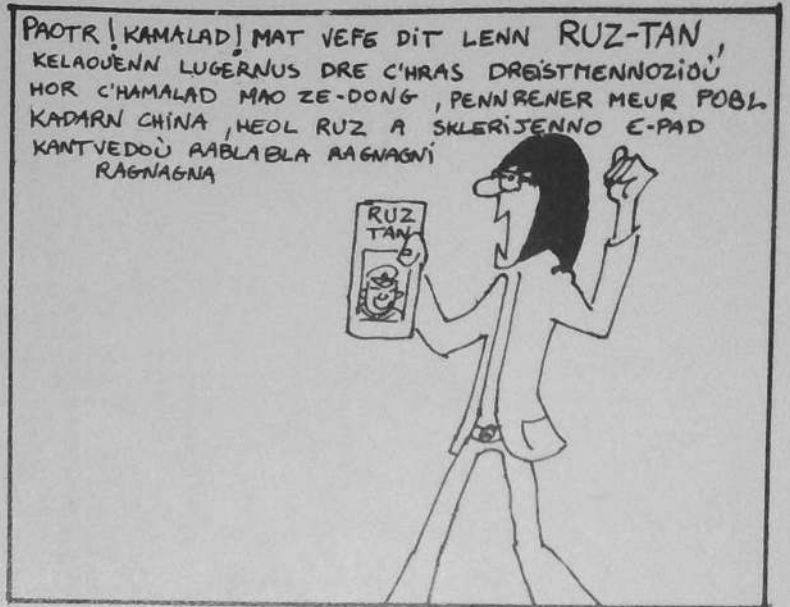 PAOTR ! KAMALAD ! MAT VEFE DIT LENN RUZ-TAN,
KELAOUENN LUGERNUS DRE C'HRAS DREISTMENNOZIOÙ
HOR C'HAMALAD MAO ZE-DONG, PENNRENER MEUR POBL
KADARN CHINA, HEOL RUZ A SKLERIJENNO E-PAD
KANTVEDOÙ RABLABLA RAGNAGNI
RAGNAGNA
RUZ
TAN